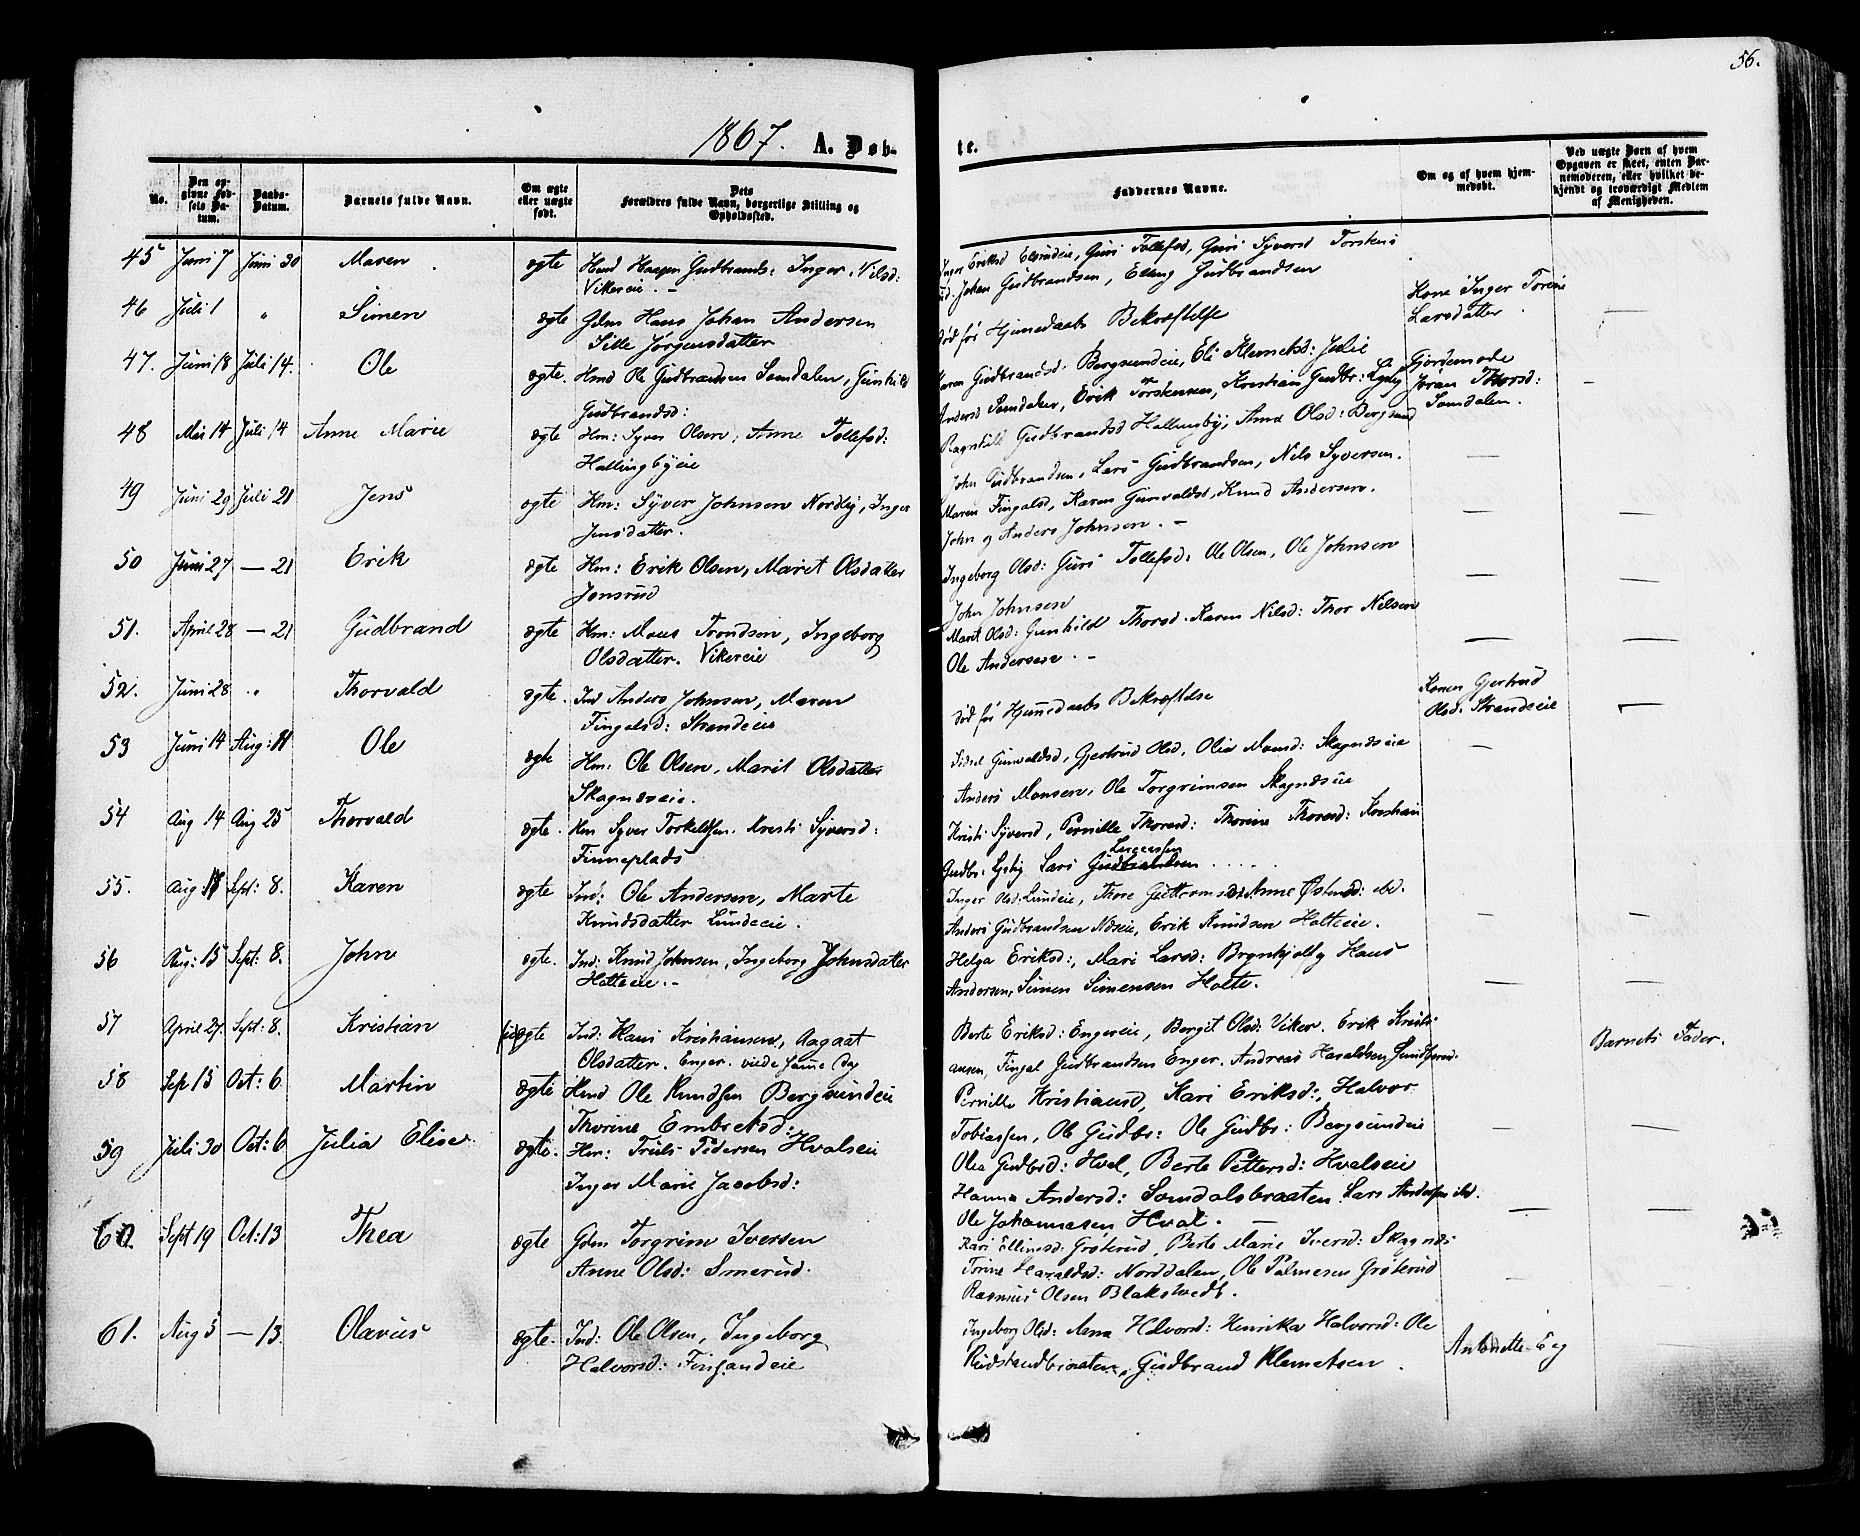 56.
1867. A. Døb-
te.
No.
Den op-
givne Fød-
sels Da-
tum.
Daabs-
Datum.
Barnets fulde Navn.
Om ægte
eller uægte
født.
Dets
Forældres fulde Navn, borgerlige Stilling og
Opholdssted.
Faddernes Navne.
Om og af hvem hjem-
medøbt.
Ved uægte Børn af hvem
Opgaven er skeet, enten Bar-
nemoderen, eller hvilket be-
kjendt og troværdigt Medlem
af Menigheden.
45 Juni 7 Juni 30 Maren ægte Hmd Haagen Gudbrands: Inger Nilsd:
Vikereie. –
Inger Eriksd Elsrudeie, Guri Tollefsd, Guri Syversd Torskens
rud. Johan Gudbrandsen, Elling Gudbrandsen
46 Juli 1 " Simen ægte Gdm Hans Johan Andersen
Sille Jørgensdatter
død før Hjemedaabs Bekræftelse
Kone Inger Torine
Larsdatter.
47. Juni 18 Juli 14. Ole ægte. Hmd Ole Gudbrandsen Somdalen, Gunhild
Gudbrandsd:
Karen Gudbrandsd. Bergsundeie, Eli Klemetsd: Julie
Andersd Somdalen, Erik Torstensen, Kristian Gudbr: Lysby
Gjordemode
Jøran Thorsd:
Somdalen.
48 Mai 14 Juli 14 Anne Marie ægte Hm: Syver Olsen, Anne Tollefsd:
Hallingbyeie
Ragnhild Gudbrandsd Hallingby, Anne Olsd: Bergsund
John Gudbrandsen, Lars Gudbrandsen, Nils Syversen.
49 Juni 29 Juli 21 Jens ægte Hm: Syver Johnsen Nordby, Inger
Jensdatter.
Maren Fingalsd, Karen Gunvaldsd, Knud Andersen.
John og Anders Johnsen. –
50 Juni 27 — 21 Erik ægte Hm: Erik Olsen, Marit Olsdatter
Jonsrud
Ingeborg Olsd: Guri Tollefsd: Ole Olsen, Ole Johnsen
John Johnsen
51. April 28 — 21 Gudbrand ægte Hm: Mons Trondsen, Ingeborg
Olsdatter. Vikereie
Marit Olsd: Gunhild Thorsd. Karen Nilsd: Thor Nilsen
Ole Andersen. –
52. Juni 28 " Thorvald ægte. Ind Anders Johnsen, Maren
Fingalsd: Strandeie
død før Hjemedaabs Bekræftelse
Konen Gjertrud
Olsd: Strandeie
53 Juni 14 Aug: 11 Ole ægte Hm: Ole Olsen, Marit Olsdatter
Skagnæseie.
Sidsel Gunvaldsd, Gjertrud Olsd, Olia Monsd: Skagnæseie
Anders Monsen, Ole Torgrimsen Skagnæseie
54 Aug 14 Aug 25 Thorvald ægte. Hm Syver Torkelsen. Kristi Syversd:
Finneplads
Kristi Syversd, Pernille Thoresd: Thorine Thoresd: Kristian
Gudbr: Lysby Lars Gudbrandsen
55. Aug 18 Sept: 8. Karen ægte Ind: Ole Andersen, Marte
Knudsdatter Lundeeie.
Inger Olsd: Lundeie, Thore Guttormsd: Anne Østensd: ibd.
Anders Gudbrandsen Næseie, Erik Knudsen Holteeie.
56 Aug: 15 Sept: 8. John ægte. Ind: Knud Johnsen, Ingeborg Johnsdatter
Holteeie. –
Helga Eriksd:, Mari Larsd: Brynhjelby Hans
Andersen, Simen Simensen Holte.
57 April 27. Sept: 8. Kristian uægte Ind: Hans Kristiansen, Aagaat
Olsdatter. Enger. viede samme Dag
Berte Eriksd: Engereie, Bergit Olsd: Viker. Erik Kristi
ansen, Fingal Gudbrandsen Enger. Andreas Haraldsen
Barnets Fader.
58 Sep 15 Oct: 6 Martin ægte Hmd Ole Knudsen Bergsundeie
Thorine Embretsd:
Pernille Kristiansd, Kari Eriksd:, Halvor
Tobiassen, Ole Gudbr: Ole Gudbr: Bergsundeie
59 Juli 30 Oct: 6 Julia Elise ægte. Hm: Truls Pedersen Hvalseie
Inger Marie Jacobsd:
Olia Gudbsd: Hval, Berte Pettersd: Hvalseie
Hanna Andersd: Somdalsbraaten Lars Andersen ibd.
Ole Johannesen Hval. —
60. Sept 19 Oct: 13 Thea ægte Gdm Torgrim Iversen
Anne Olsd: Smerud.
Kari Ellingsd: Grøterud, Berte Marie Iversd: Skagnæs
Torine Haraldsd: Norddalen, Ole Palmesen Grøterud
Rasmus Olsen Blakstvedt.
61. Aug 5 — 13. Olavus ægte. Ind: Ole Olsen, Ingeborg
Halvorsd: Finsandeie
Ingeborg Olsd: Anna Halvorsd: Henrika Halvorsd: Ole
Rudstandbraaten, Gudbrand Klemetsen.
Antonette Eeg